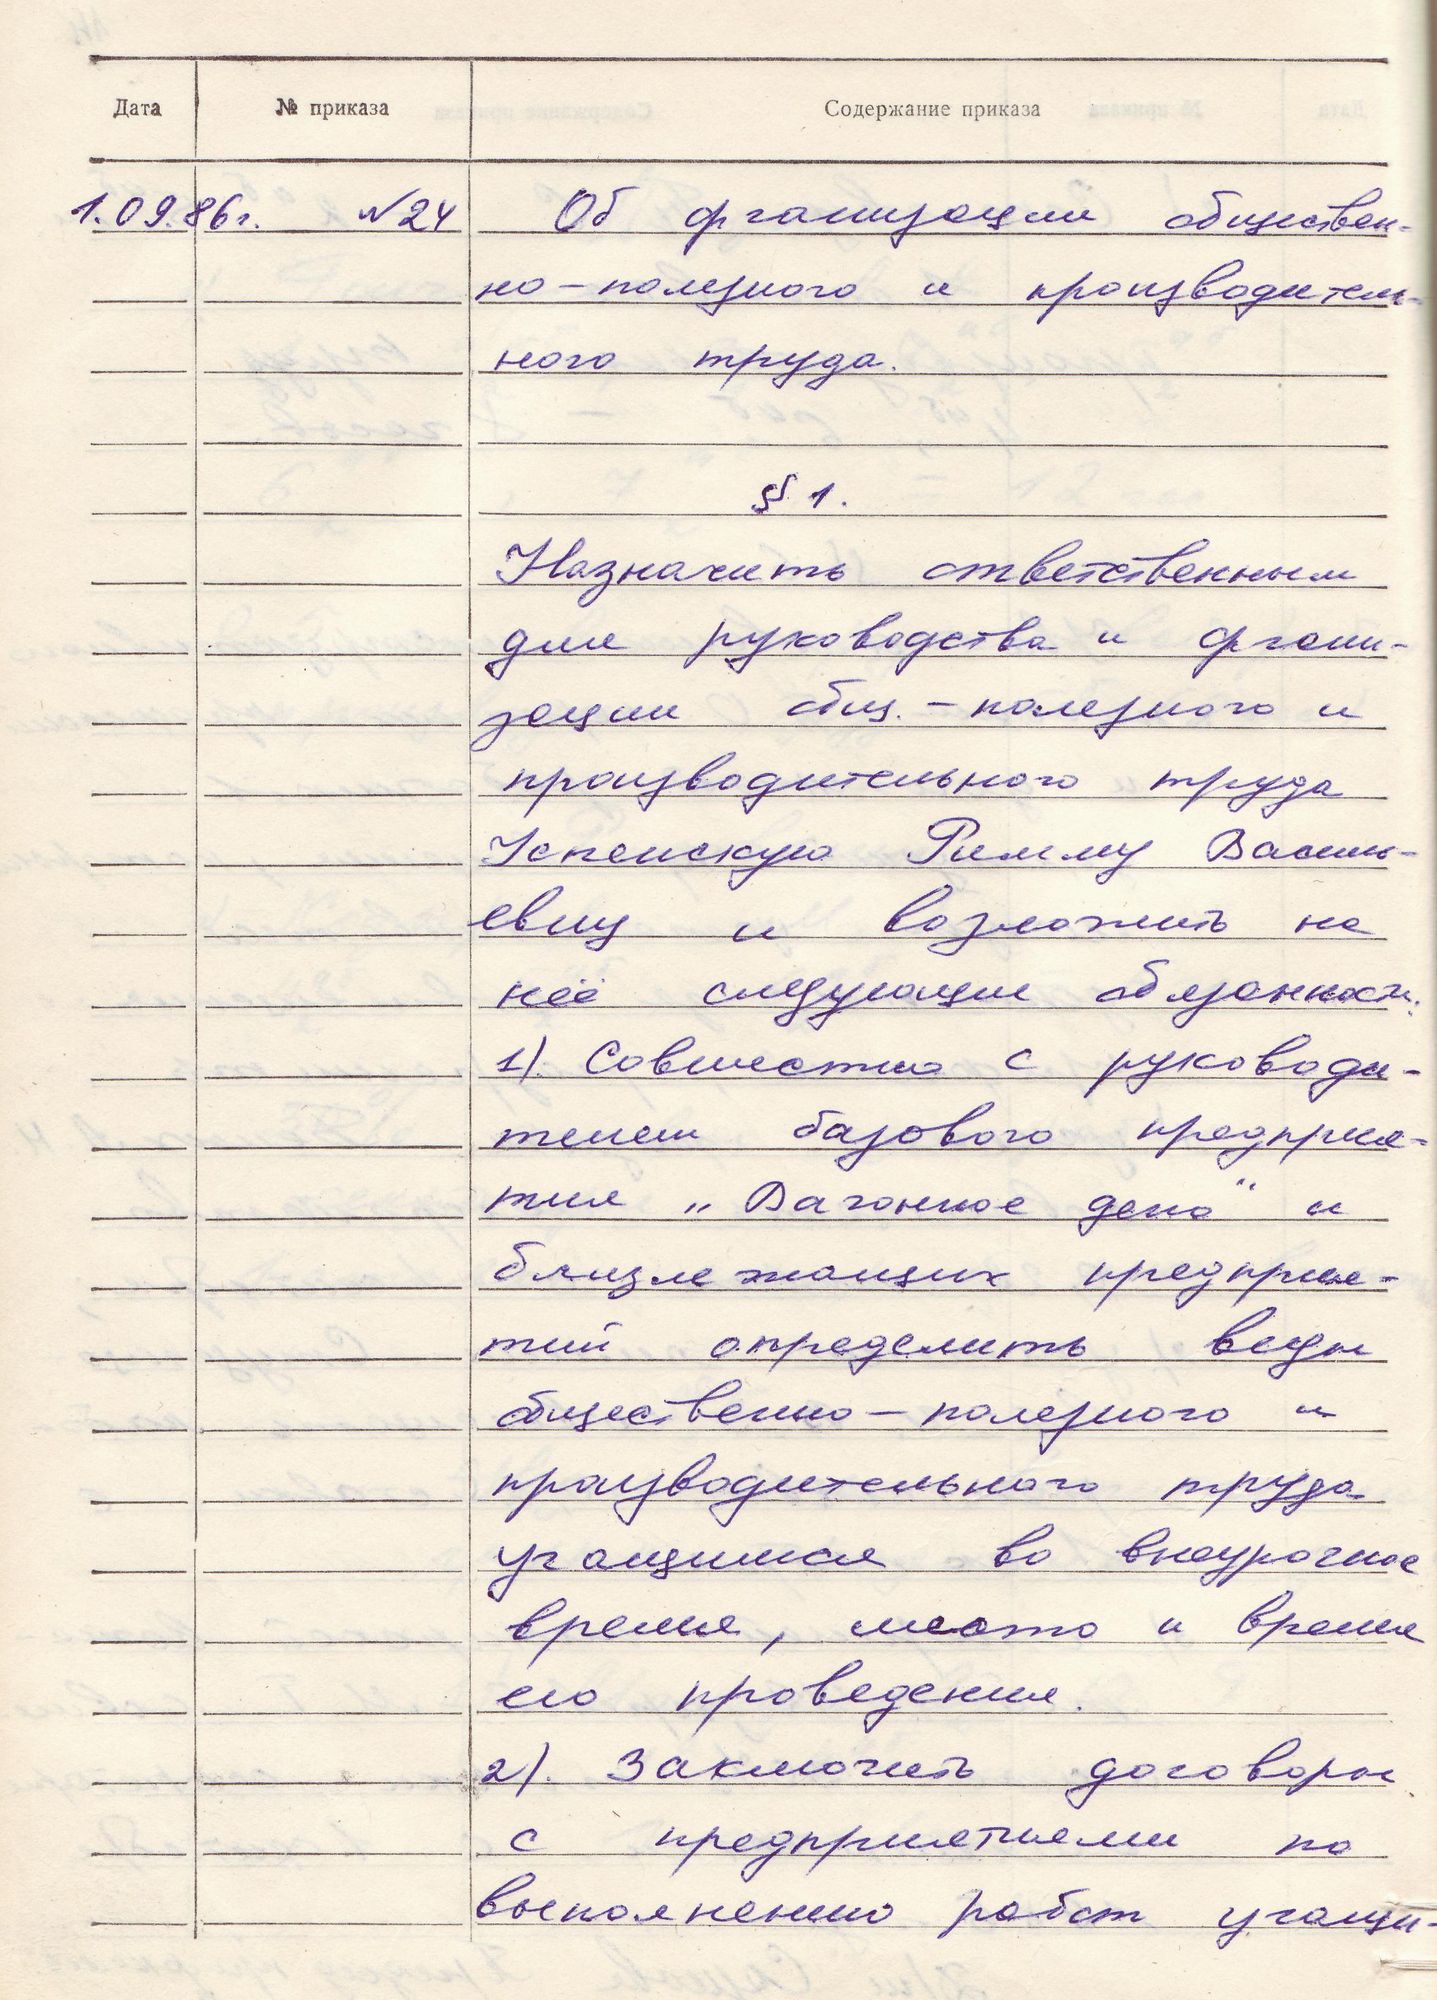 Дата № приказа Содержание приказа
1.09.86г. №24 Об организации обществен-
но-полезного и производитель-
ного труда.
§ 1.
Назначить ответственным
для руководства и органи-
зации общ.-полезного и
производительного труда
Успенскую Римму Василь-
евну и возложить на
неё следующие обязанности:
1). Совместно с руководи-
телем базового предприя-
тия „Вагонное депо“ и
близлежащих предприя-
тий определить виды
общественно-полезного и
производительного труда
учащимися во внеурочное
время, место и время
его проведения.
2). Заключить договоры
с предприятиями по
выполнению работ учащи-